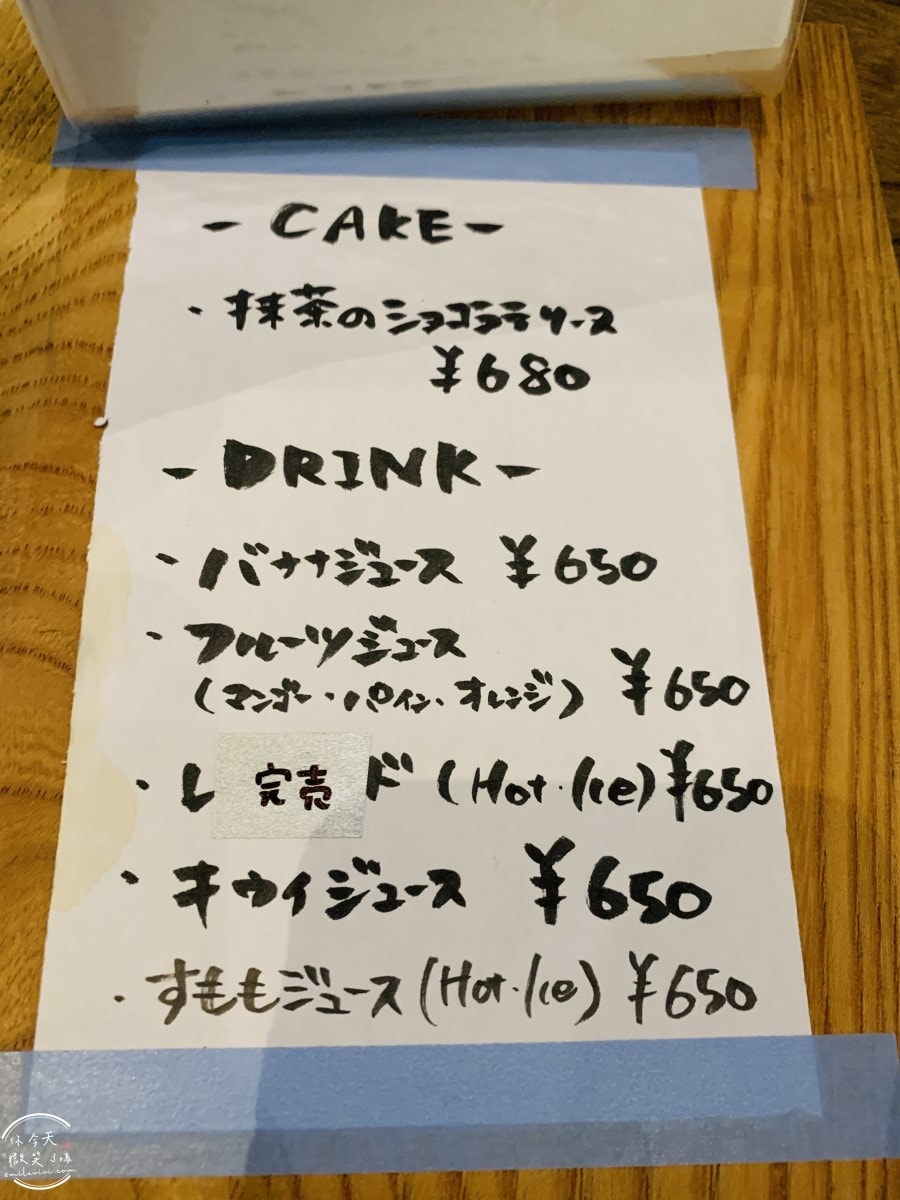 - CAKE -
・抹茶のショコラテリーヌ
¥680
- DRINK -
・バナナジュース ¥650
・フルーツジュース
(マンゴー・パイン・オレンジ) ¥650
・レ 完売 ド (Hot・Ice) ¥650
・キウイジュース ¥650
・すももジュース (Hot・Ice) ¥650
今天
微笑